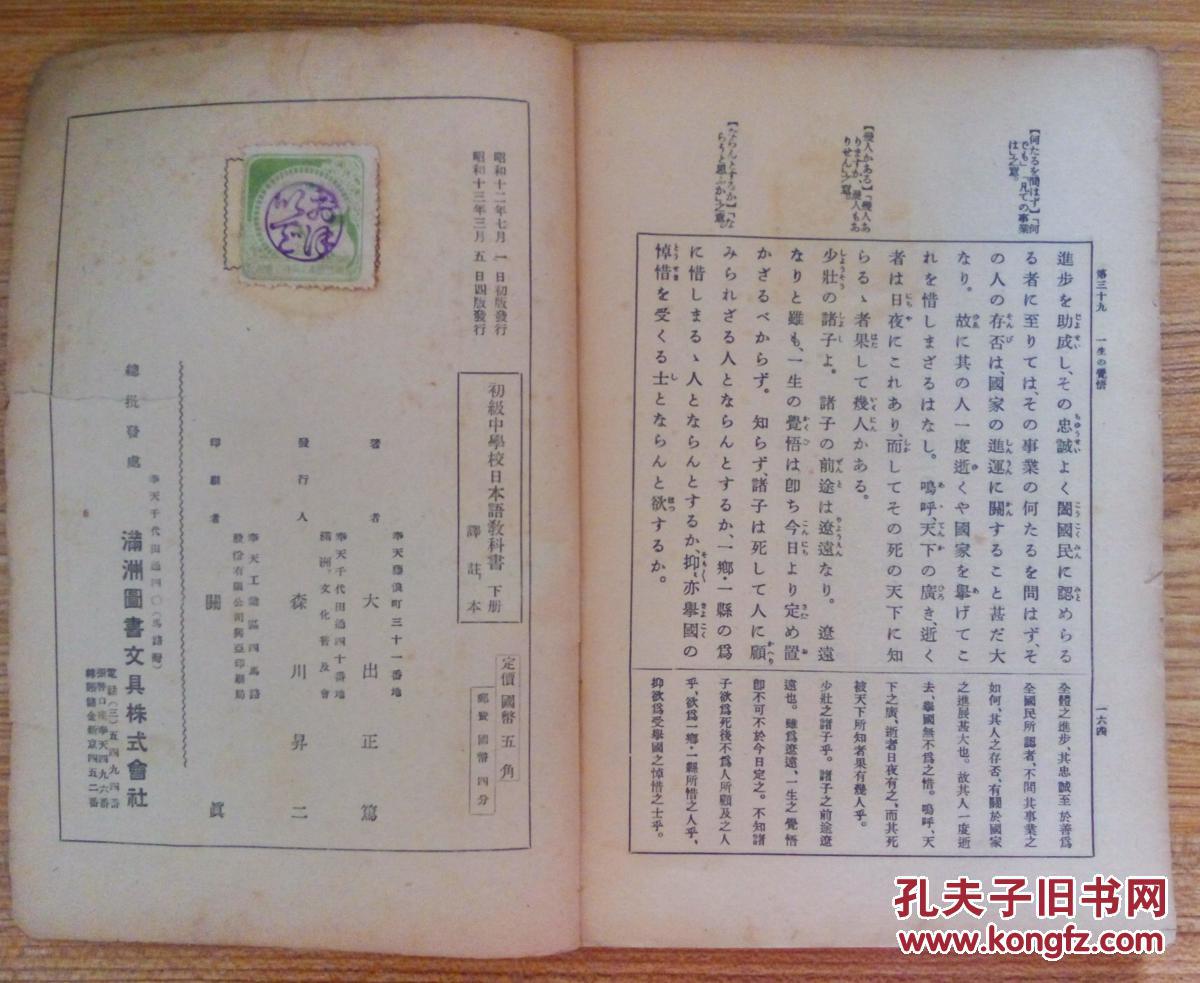 第三十九　一生の覺悟
一六四
【何たるを問はず】「何
でも」「凡ての事業
は」之意。
【幾人かある】「幾人あ
りますか、幾人もあ
りません」之意。
【ならんとするか】「な
らうと思ふか」之意。
進步を助成し、その忠誠よく闔國民に認めらる
る者に至りては、その事業の何たるを問はず、そ
の人の存否は、國家の進運に關すること甚だ大
なり。故に其の人一度逝くや國家を擧げてこ
れを惜しまざるはなし。嗚呼、天下の廣き、逝く
者は日夜にこれあり、而してその死の天下に知
らるゝ者果して幾人かある。
少壯の諸子よ。諸子の前途は遼遠なり。遼遠
なりと雖も、一生の覺悟は卽ち今日より定め置
かざるべからず。知らず諸子は死して人に顧
みられざる人とならんとするか、一鄕・一縣の爲
に惜しまるゝ人とならんとするか、抑〻亦擧國の
悼惜を受くる士とならんと欲するか。
全體之進步、其忠誠至於善爲
全國民所認者、不問其事業之
如何、其人之存否、有關於國家
之進展甚大也。故其人一度逝
去、擧國無不爲之惜。嗚呼、天
下之廣、逝者日夜有之、而其死
被天下所知者果有幾人乎。
少壯之諸子乎。諸子之前途遼
遠也。雖爲遼遠、一生之覺悟
卽不可不於今日定之。不知諸
子欲爲死後不爲人所顧及之人
乎、欲爲一鄕・一縣所惜之人乎、
抑欲爲受擧國之悼惜之士乎。
昭和十二年七月一日初版發行
昭和十三年三月五日四版發行
初級中學校日本語敎科書 下册
譯註本
定價國幣五角
郵費國幣四分
奉天藤浪町三十一番地
著者　大出正篤
奉天千代田通四十番地
滿洲文化普及會
發行人　森川昇二
奉天工業區四馬路
股份有限公司興亞印刷局
印刷者　關眞
奉天千代田通四〇(馬路灣)
總批發處　滿洲圖書文具株式會社
電話(三)五四九四番
振替口座奉天四九六番
轉賬儲金新京四五二番
孔夫子旧书网
www.kongfz.com